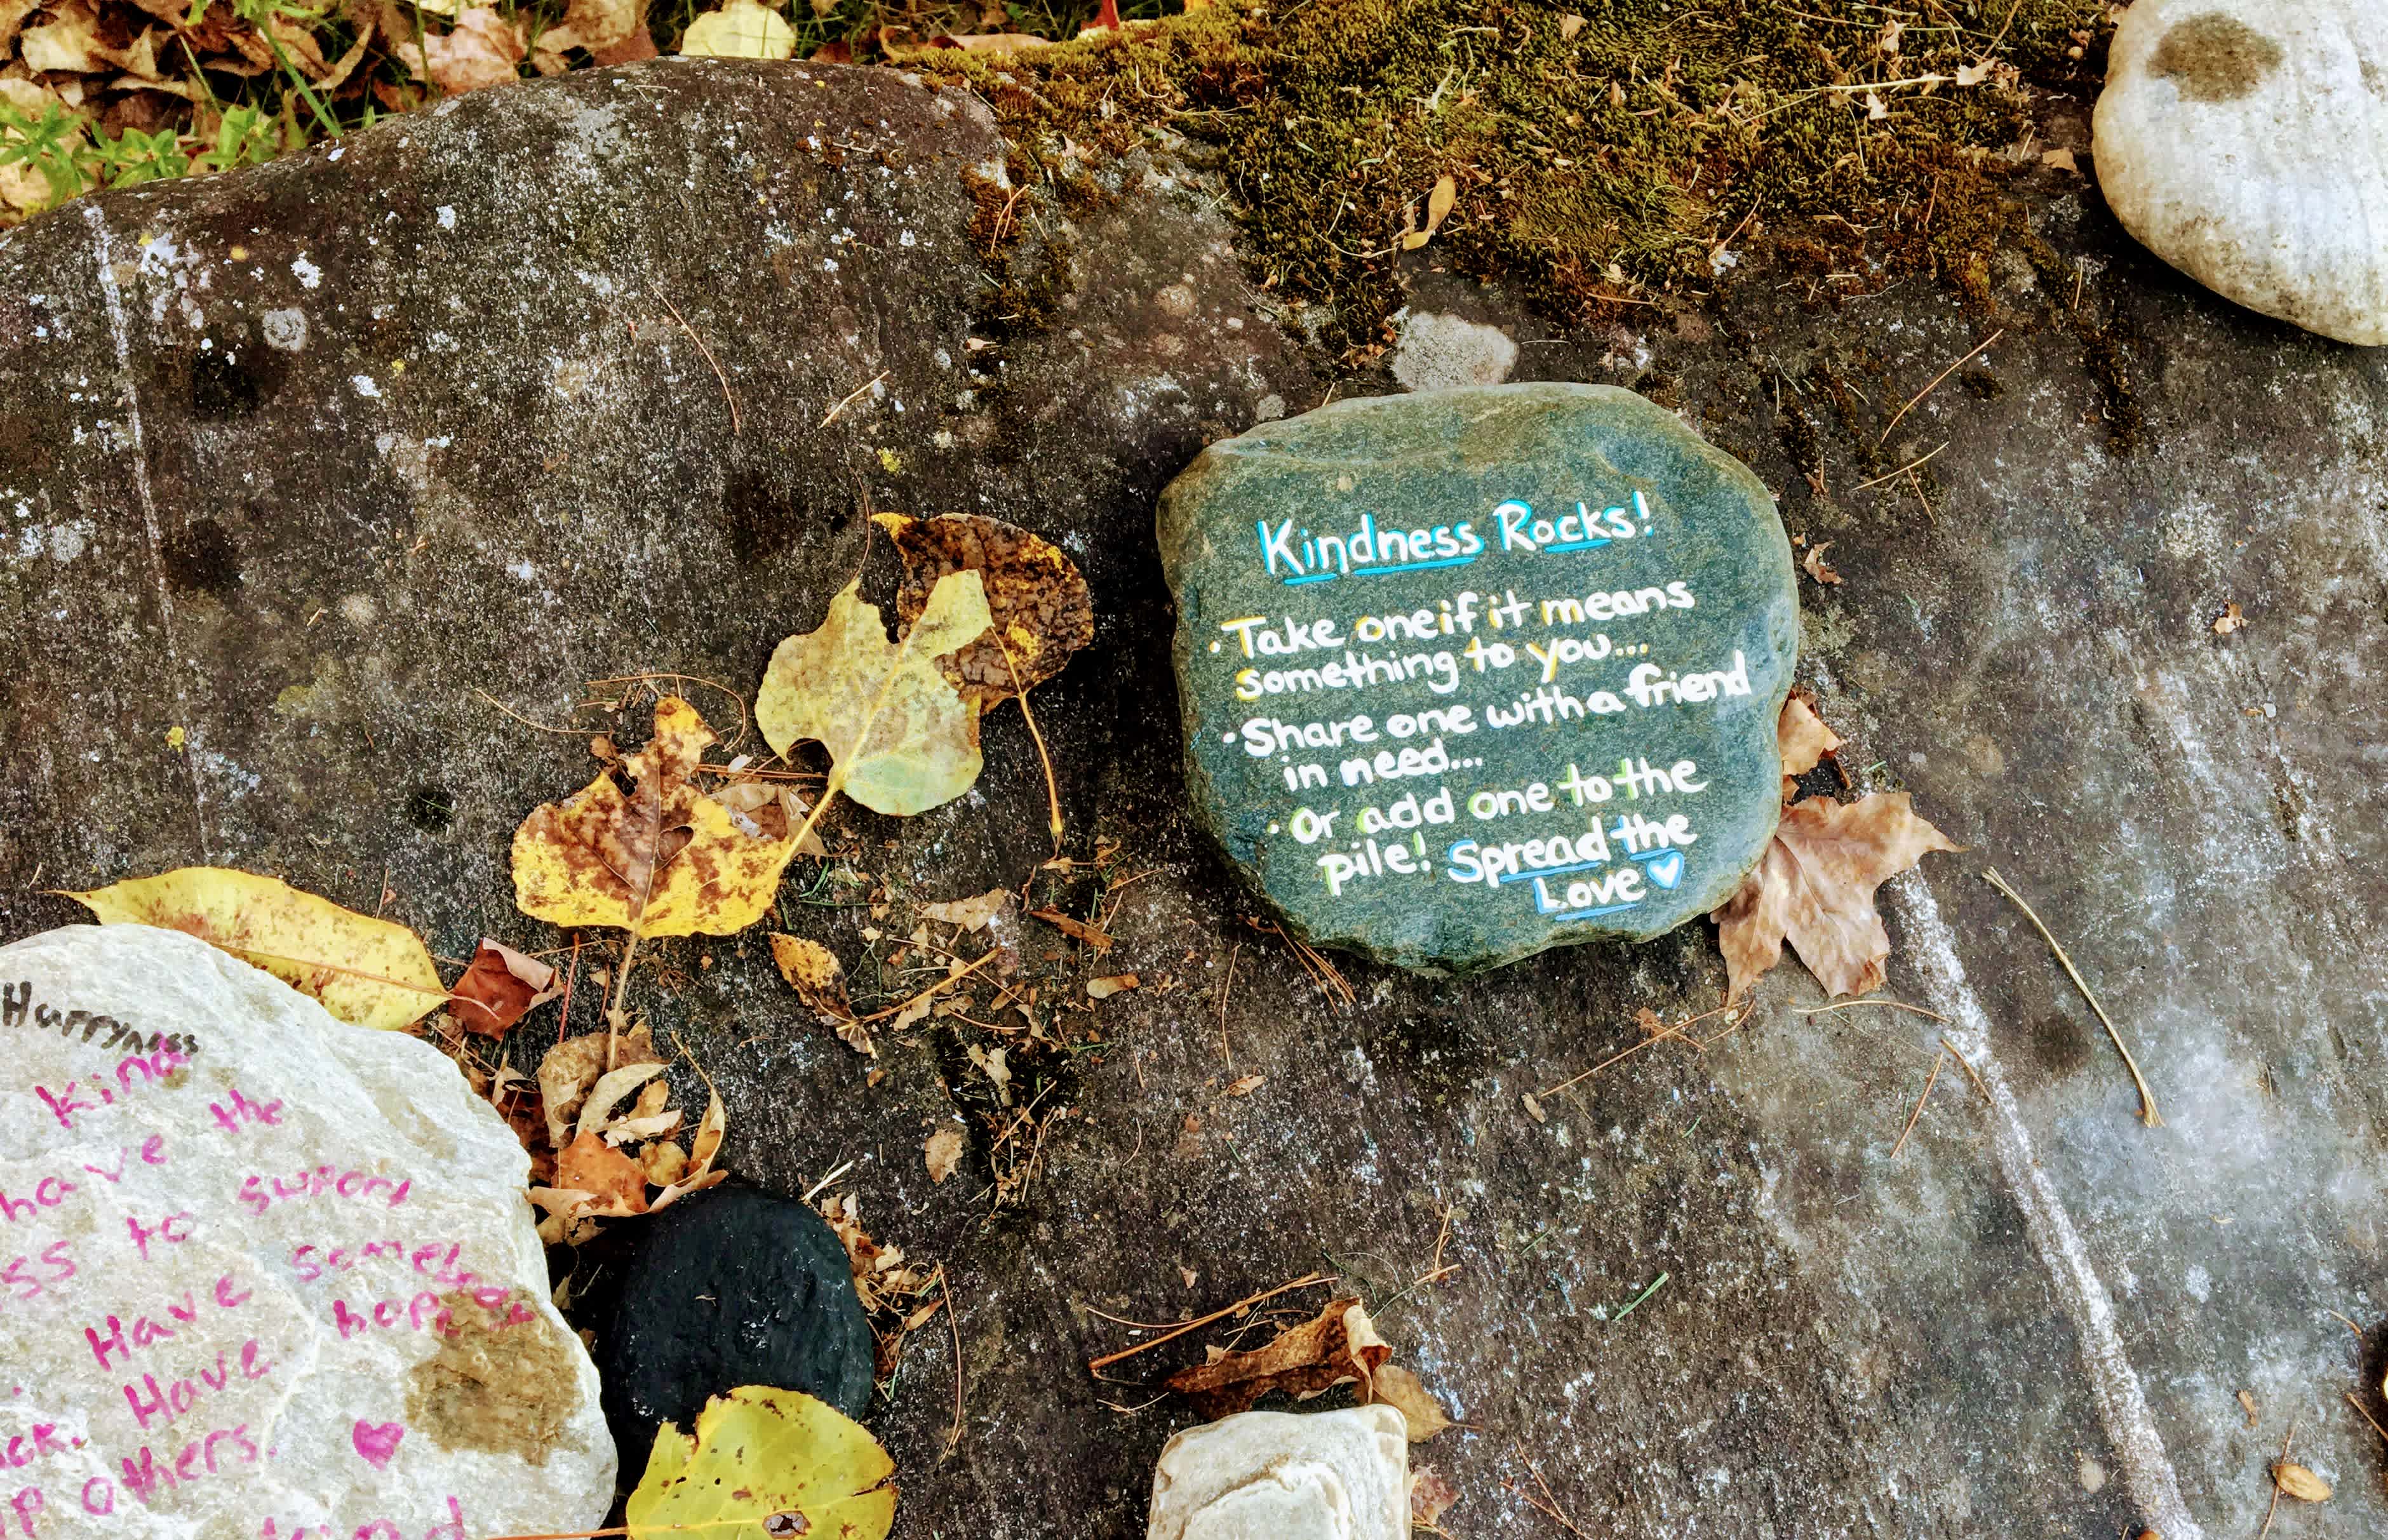 Kindness Rocks!
• Take one if it means
something to you...
• Share one with a friend
in need...
• Or add one to the
pile! Spread the
Love
Kind
have the
ss to
Have
hope
ck. Have
p others.